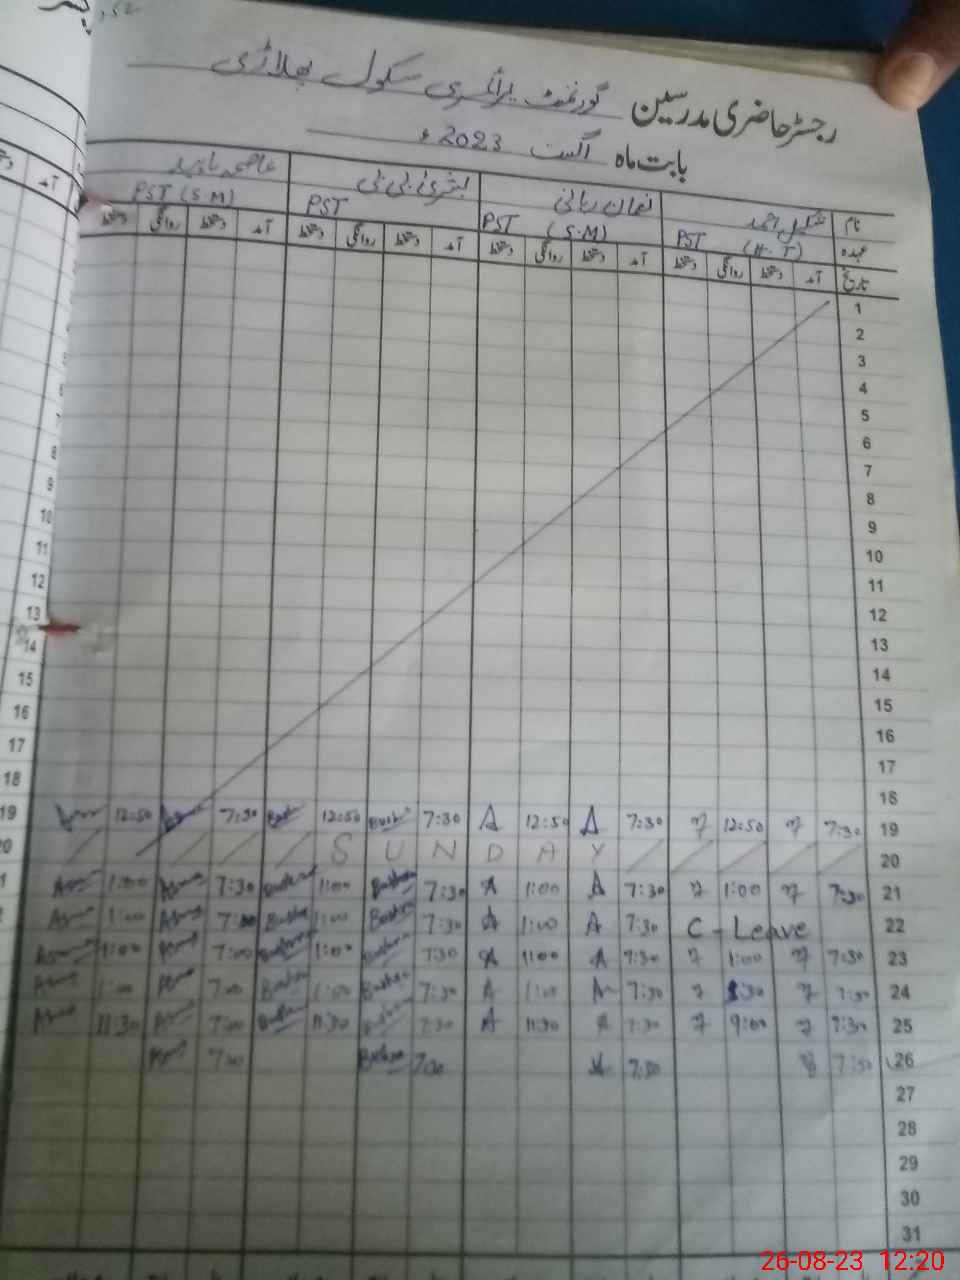 رجسٹر حاضری مدرسین گورنمنٹ پرائمری سکول بھلاڑی
بابت ماہ اگست 2023ء
نام شکیل احمد نعمان ربانی بشریٰ بی بی
عہدہ PST (H.T) PST (S.M) PST PST (S.M)
تاریخ آمد دستخط روانگی دستخط آمد دستخط روانگی دستخط آمد دستخط روانگی دستخط آمد دستخط روانگی دستخط
1
2
3
4
5
6
7
8
9
10
11
12
13
14
15
16
17
18
19 7:30 12:50 7:30 A 12:50 A 7:30 Bush 12:50 7:30 12:50
20 S U N D A Y
21 7:30 1:00 7:30 A 1:00 A 7:30 Bushra 1:00 Bushra 7:30 Asma 1:00 Asma
22 C - Leave 7:30 A 1:00 A 7:30 Bushra 1:00 Bushra Asma 1:00 Asma
23 7:30 1:00 7:30 A 1:00 A 730 Bushra 1:00 Bushra 7:00 Asma 1:00 Asma
24 7:30 7:30 A 1:00 A 7:30 Bushra 1:00 Bushra 7:00 Asma 1:00 Asma
25 7:30 9:00 7:30 A 11:30 A 7:30 Bushra 11:30 Bushra 7:00 Asma 11:30 Asma
26 7:30 7:30 7:30 Bushra 7:00
27
28
29
30
31
26-08-23 12:20